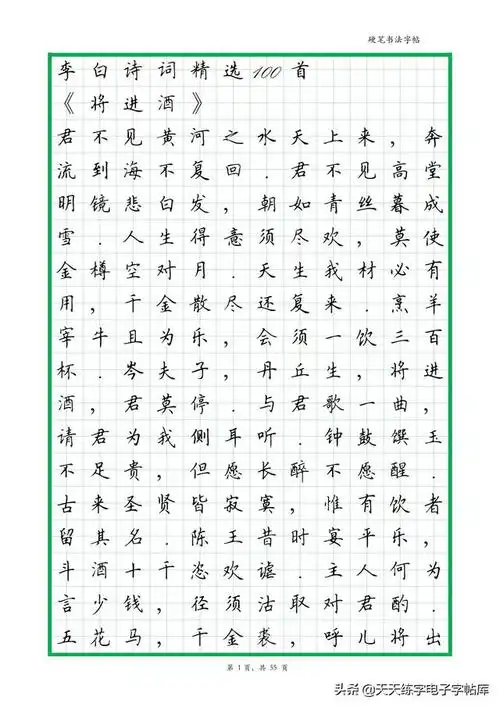 硬笔书法字帖
李白诗词精选100首
《将进酒》
君不见黄河之水天上来,奔
流到海不复回.君不见高堂
明镜悲白发,朝如青丝暮成
雪.人生得意须尽欢,莫使
金樽空对月.天生我材必有
用,千金散尽还复来.烹羊
宰牛且为乐,会须一饮三百
杯.岑夫子,丹丘生,将进
酒,君莫停.与君歌一曲,
请君为我侧耳听.钟鼓馔玉
不足贵,但愿长醉不愿醒.
古来圣贤皆寂寞,惟有饮者
留其名.陈王昔时宴平乐,
斗酒十千恣欢谑.主人何为
言少钱,径须沽取对君酌.
五花马,千金裘,呼儿将出
第 1 页, 共 55 页
头条@天天练字电子字帖库